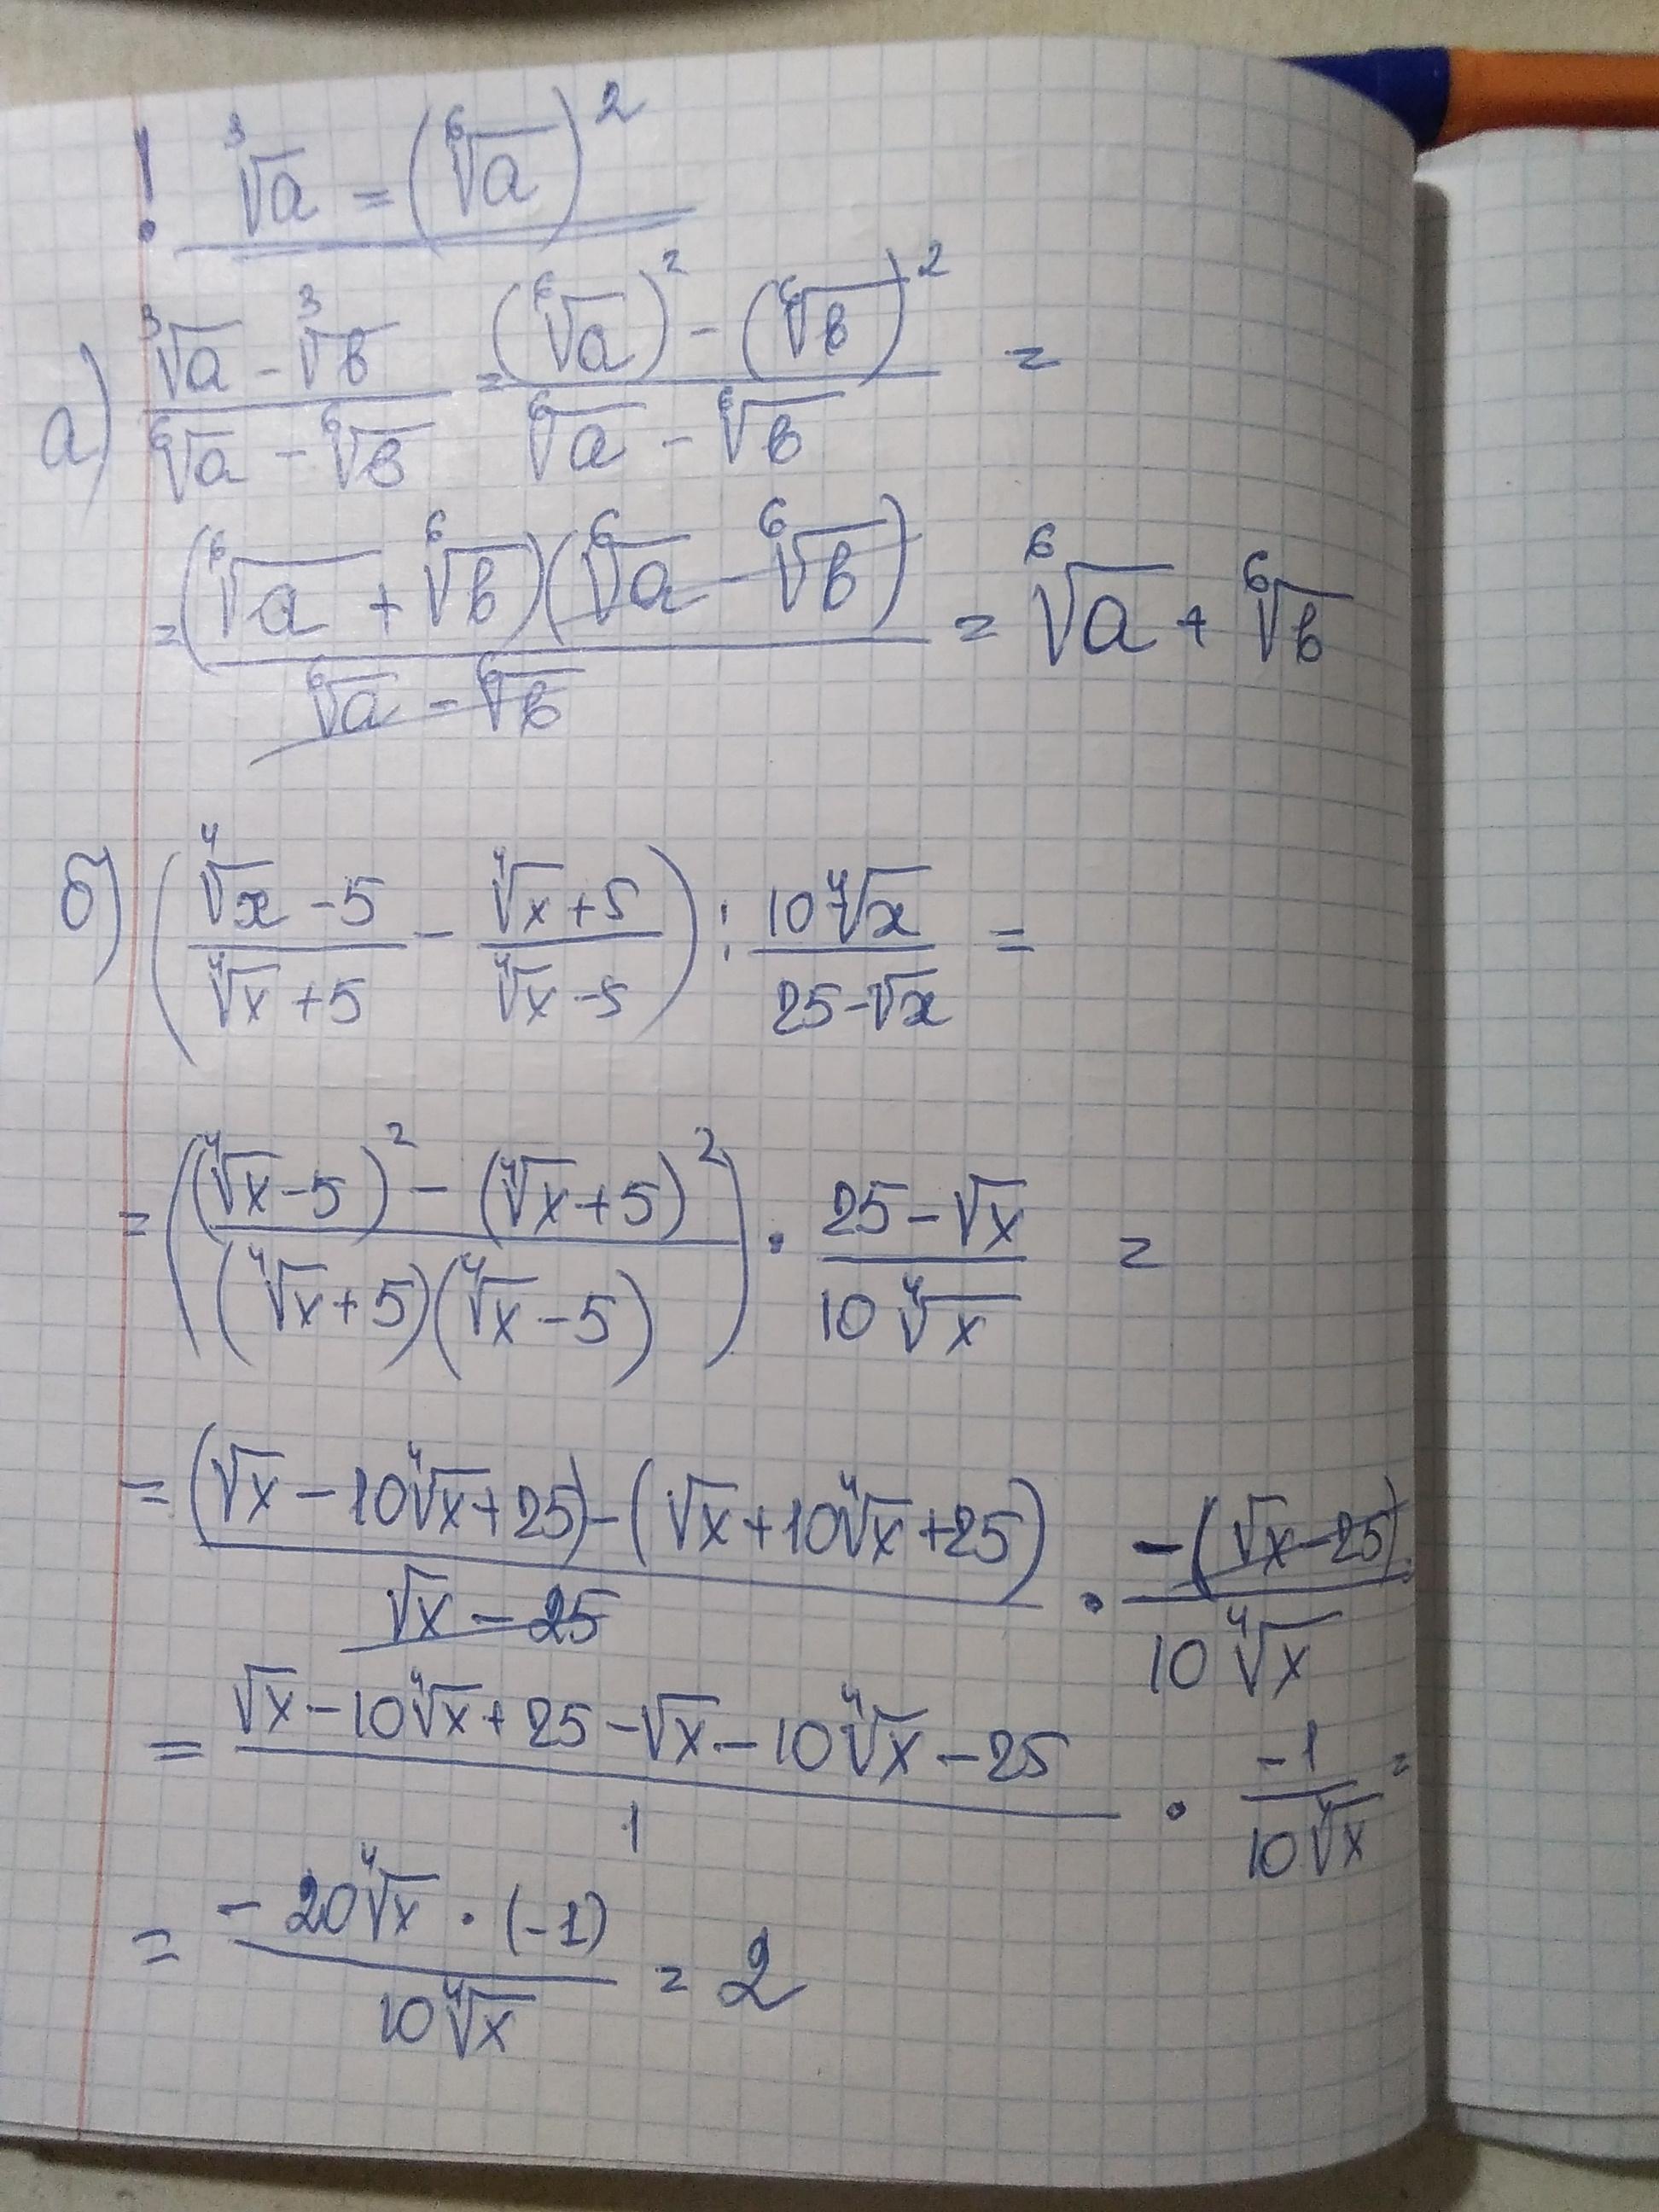 ! ∛a = (⁶√a)²
а) (∛a - ∛b)/(⁶√a - ⁶√b) = ((⁶√a)² - (⁶√b)²)/(⁶√a - ⁶√b) =
= ((⁶√a + ⁶√b)(⁶√a - ⁶√b))/(⁶√a - ⁶√b) = ⁶√a + ⁶√b
б) ((⁴√x - 5)/(⁴√x + 5) - (⁴√x + 5)/(⁴√x - 5)) : (10⁴√x)/(25 - √x) =
= (((⁴√x - 5)² - (⁴√x + 5)²)/((⁴√x + 5)(⁴√x - 5))) · (25 - √x)/(10⁴√x) =
= ((√x - 10⁴√x + 25) - (√x + 10⁴√x + 25))/(√x - 25) · (-(√x - 25))/(10⁴√x)
= (√x - 10⁴√x + 25 - √x - 10⁴√x - 25)/1 · (-1)/(10⁴√x) =
= (-20⁴√x · (-1))/(10⁴√x) = 2